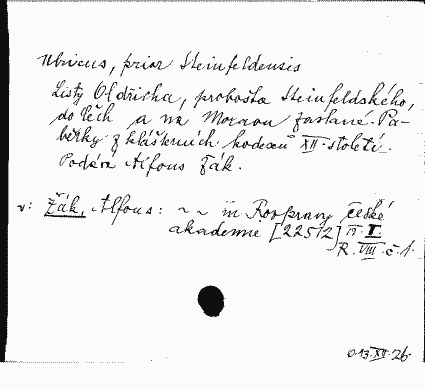 Ulricus, prior Steinfeldensis
Listy Oldřicha, probošta Steinfeldského,
do Čech a na Moravu zaslané. Pa-
běrky z klášterních kodexů XII. století.
Podává Alfons Žák.
v: Žák, Alfons: ~ ~ in Rozpravy České
akademie [22512] tř. I.
R. VIII č. 1.
13.XII.26.